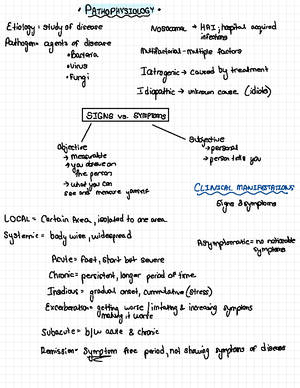 • PATHOPHYSIOLOGY •
Etiology = study of disease
Pathogen = agents of disease
• Bacteria
• Virus
• Fungi
Nosocomial → HAI; hospital acquired
infections
Multifactorial - multiple factors
Iatrogenic → caused by treatment
Idiopathic → unknown cause (idiots)
SIGNS vs. Symptoms
Objective
→ measurable
→ you observe on
the person
→ what you can
see and measure yourself
Subjective
→ personal
→ person tells you
CLINICAL MANIFESTATIONS
Signs & symptoms
LOCAL = Certain Area, isolated to one area
Systemic = body wide, widespread
Asymptomatic = no noticable
symptoms
Acute = fast, short but severe
Chronic = persistent, longer period of time
Insidious = gradual onset, cummulative (stress)
Excerberation = getting worse / irritating & increasing symptoms
making it worse
Subacute = b/w acute & chronic
Remission = Symptom free period, not showing symptoms of disease